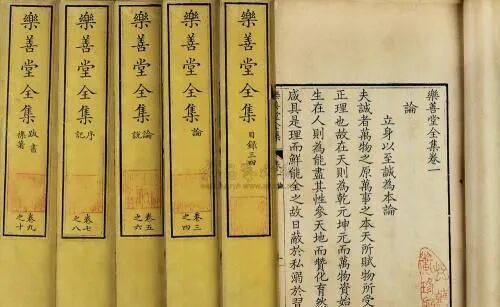 樂善堂全集卷一
論
立身以至誠為本論
夫誠者萬物之原萬事之本天所賦物所受
正理也故在天則為乾元坤元而萬物資始
生在人則為能盡其性參天地而贊化育然
咸具是理而鮮能全之故日蔽於私溺於習
樂善堂全集
目錄三四
樂善堂全集
論
卷三
之四
樂善堂全集
論
說
卷五
之六
樂善堂全集
序
記
卷七
之八
樂善堂全集
跋書
襍著
卷九
之十